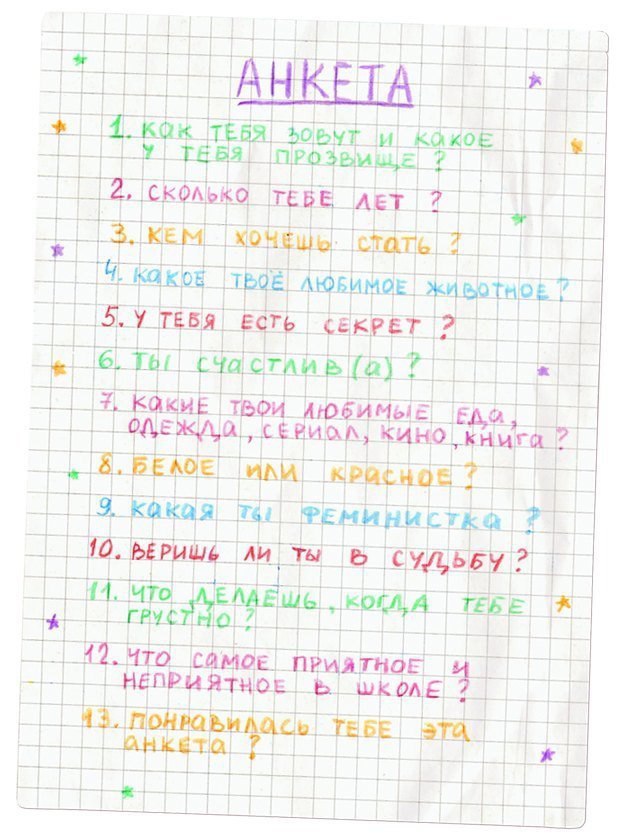 АНКЕТА
1. КАК ТЕБЯ ЗОВУТ И КАКОЕ
У ТЕБЯ ПРОЗВИЩЕ?
2. СКОЛЬКО ТЕБЕ ЛЕТ?
3. КЕМ ХОЧЕШЬ СТАТЬ?
4. КАКОЕ ТВОЁ ЛЮБИМОЕ ЖИВОТНОЕ?
5. У ТЕБЯ ЕСТЬ СЕКРЕТ?
6. ТЫ СЧАСТЛИВ(А)?
7. КАКИЕ ТВОИ ЛЮБИМЫЕ ЕДА,
ОДЕЖДА, СЕРИАЛ, КИНО, КНИГА?
8. БЕЛОЕ ИЛИ КРАСНОЕ?
9. КАКАЯ ТЫ ФЕМИНИСТКА?
10. ВЕРИШЬ ЛИ ТЫ В СУДЬБУ?
11. ЧТО ДЕЛАЕШЬ, КОГДА ТЕБЕ
ГРУСТНО?
12. ЧТО САМОЕ ПРИЯТНОЕ И
НЕПРИЯТНОЕ В ШКОЛЕ?
13. ПОНРАВИЛАСЬ ТЕБЕ ЭТА
АНКЕТА?